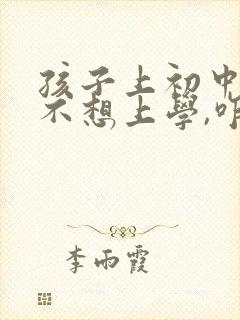 孩子上初中
不想上學,咋
李雨霞